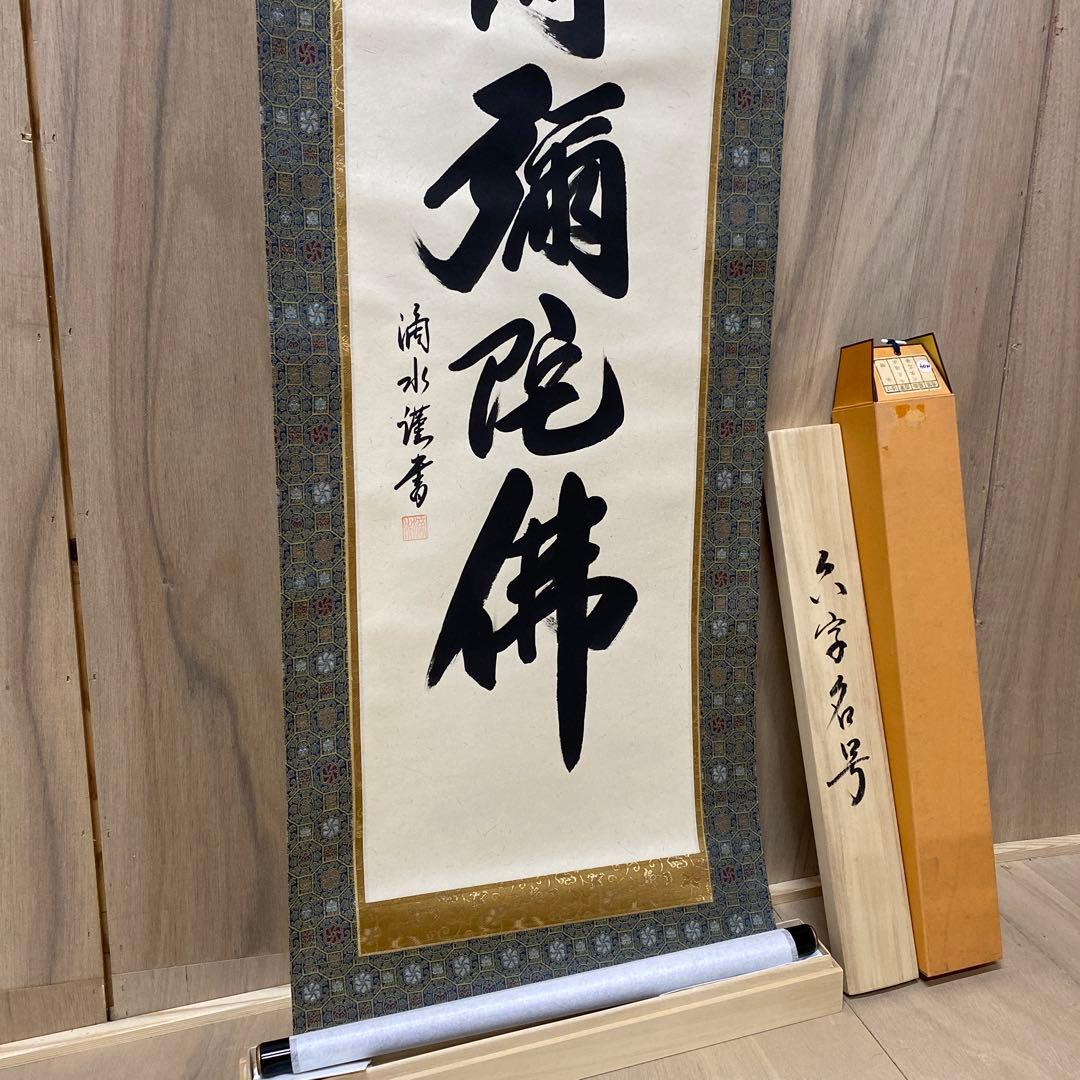 彌陀佛
滴水謹書
六字名号